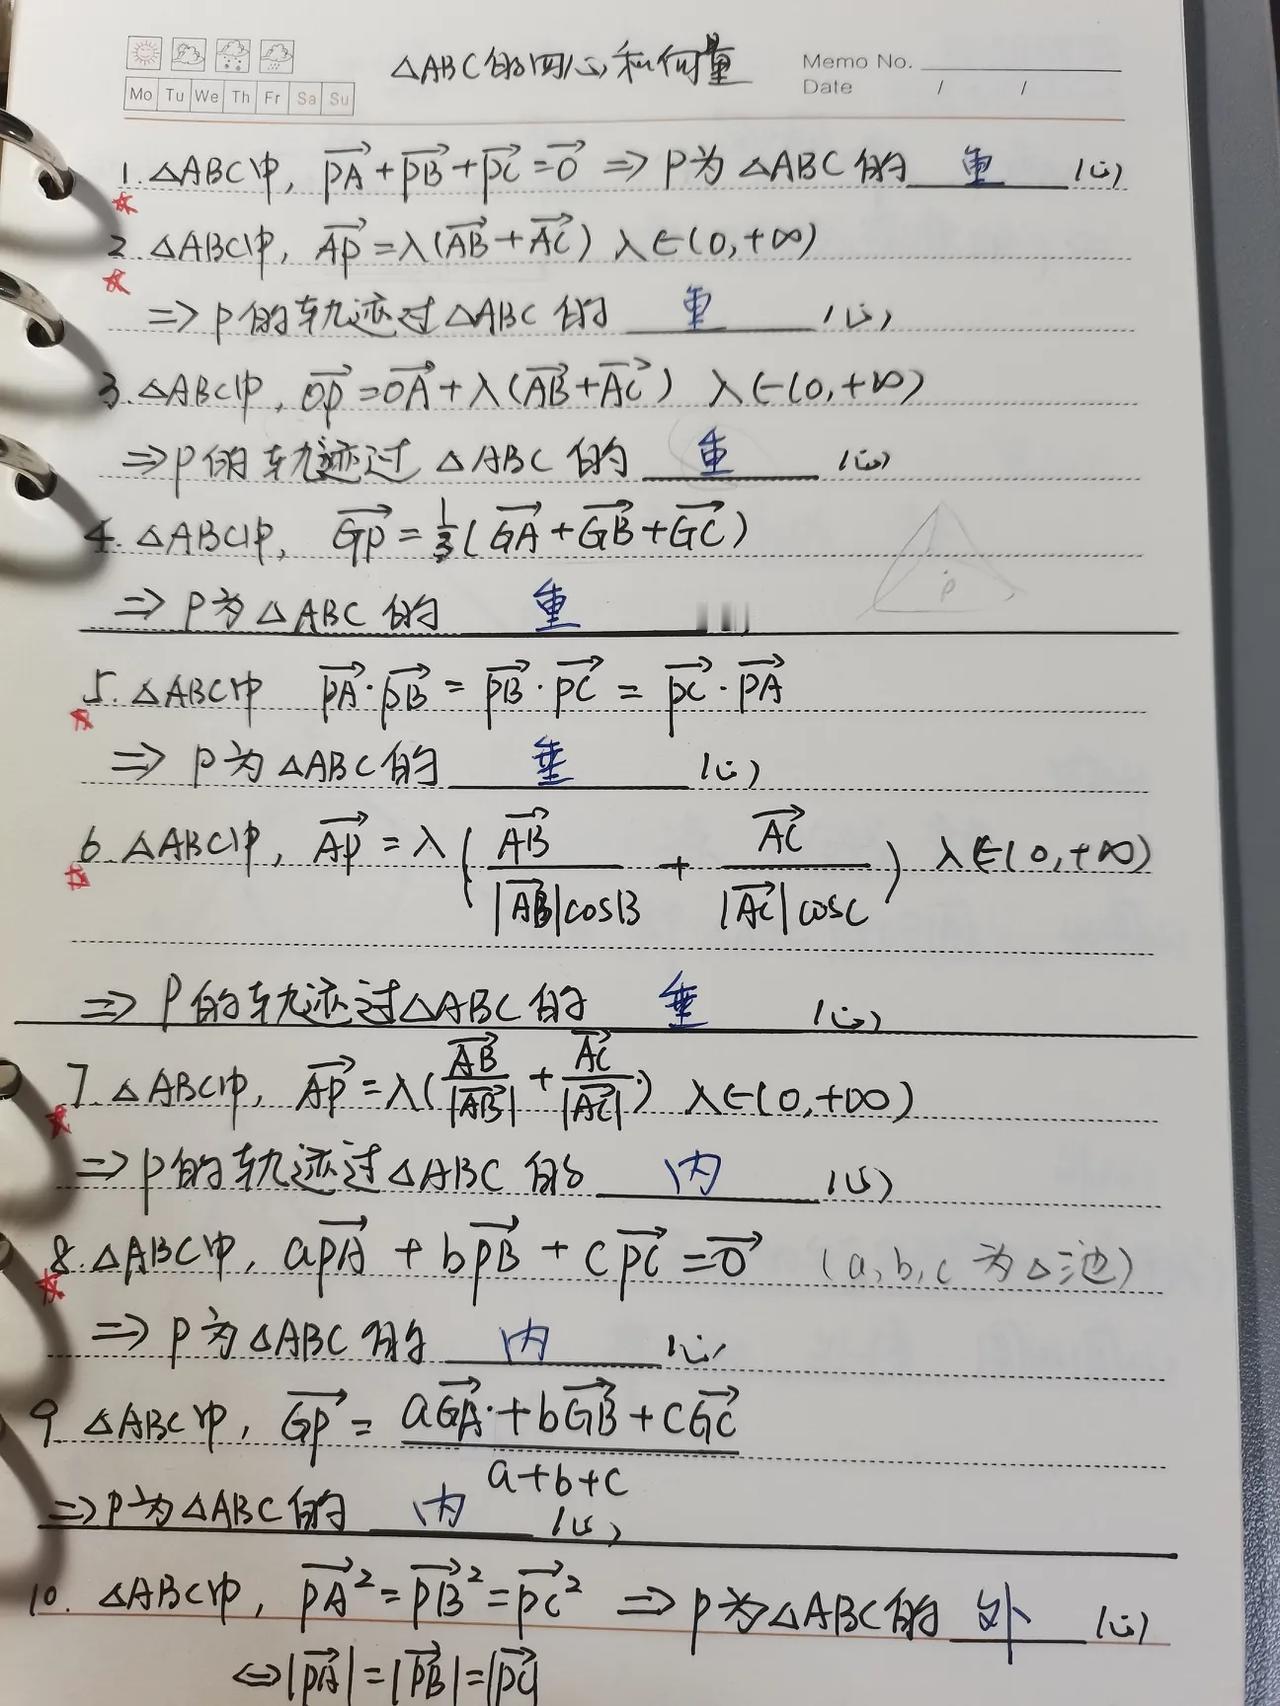 △ABC的四心和向量
Memo No.
Date / /
Mo Tu We Th Fr Sa Su
1. △ABC中, PA+PB+PC=0 ⇒ P为△ABC的 重 心
2. △ABC中, AP=λ(AB+AC) λ∈(0,+∞)
⇒ P的轨迹过△ABC的 重 心
3. △ABC中, OP=OA+λ(AB+AC) λ∈(0,+∞)
⇒ P的轨迹过△ABC的 重 心
4. △ABC中, GP=1/3(GA+GB+GC)
P
⇒ P为△ABC的 重
5. △ABC中 PA·PB=PB·PC=PC·PA
⇒ P为△ABC的 垂 心
6. △ABC中, AP=λ(AB/|AB|cosB + AC/|AC|cosC) λ∈(0,+∞)
⇒ P的轨迹过△ABC的 垂 心
7. △ABC中, AP=λ(AB/|AB| + AC/|AC|) λ∈(0,+∞)
⇒ P的轨迹过△ABC的 内 心
8. △ABC中, aPA + bPB + cPC=0 (a,b,c为△三边)
⇒ P为△ABC的 内 心
9. △ABC中, GP=(aGA+bGB+cGC)/(a+b+c)
⇒ P为△ABC的 内 心
10. △ABC中, PA²=PB²=PC² ⇒ P为△ABC的 外 心
⇔ |PA|=|PB|=|PC|